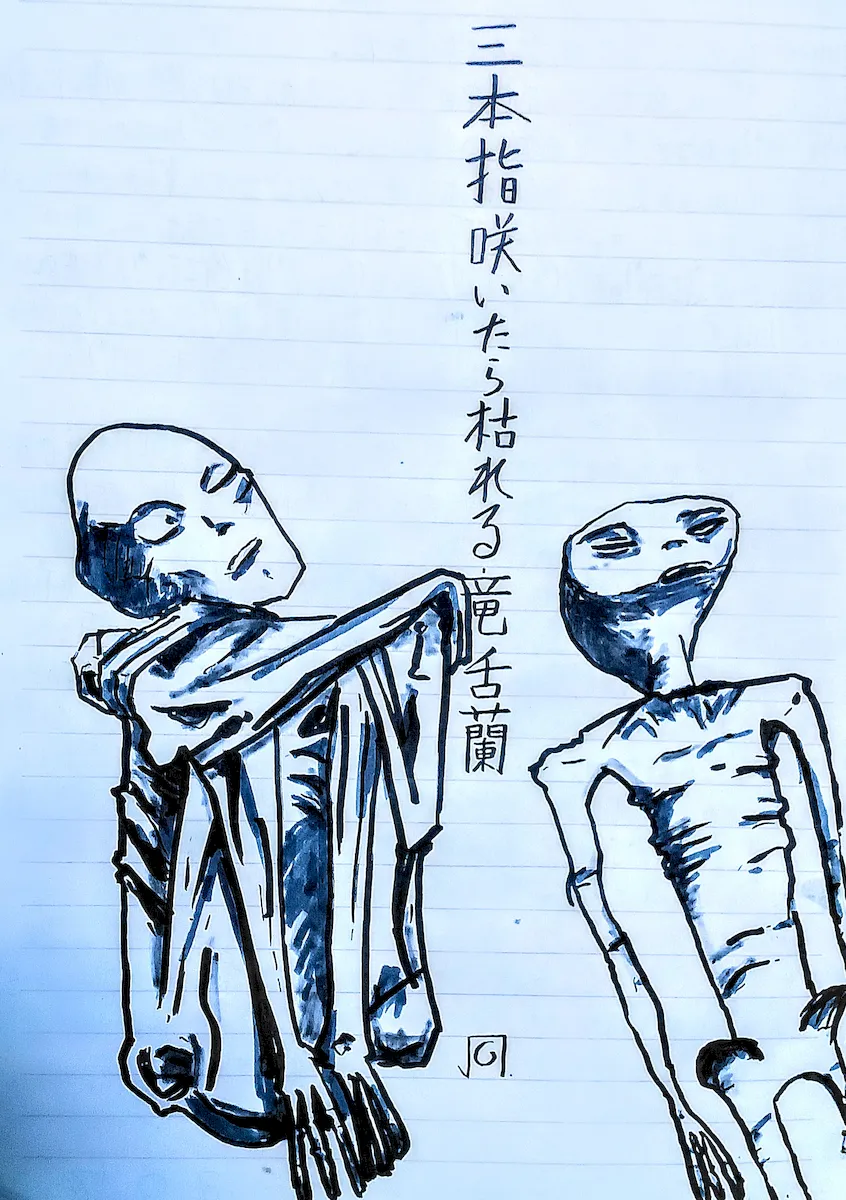 三本指咲いたら枯れる竜舌蘭